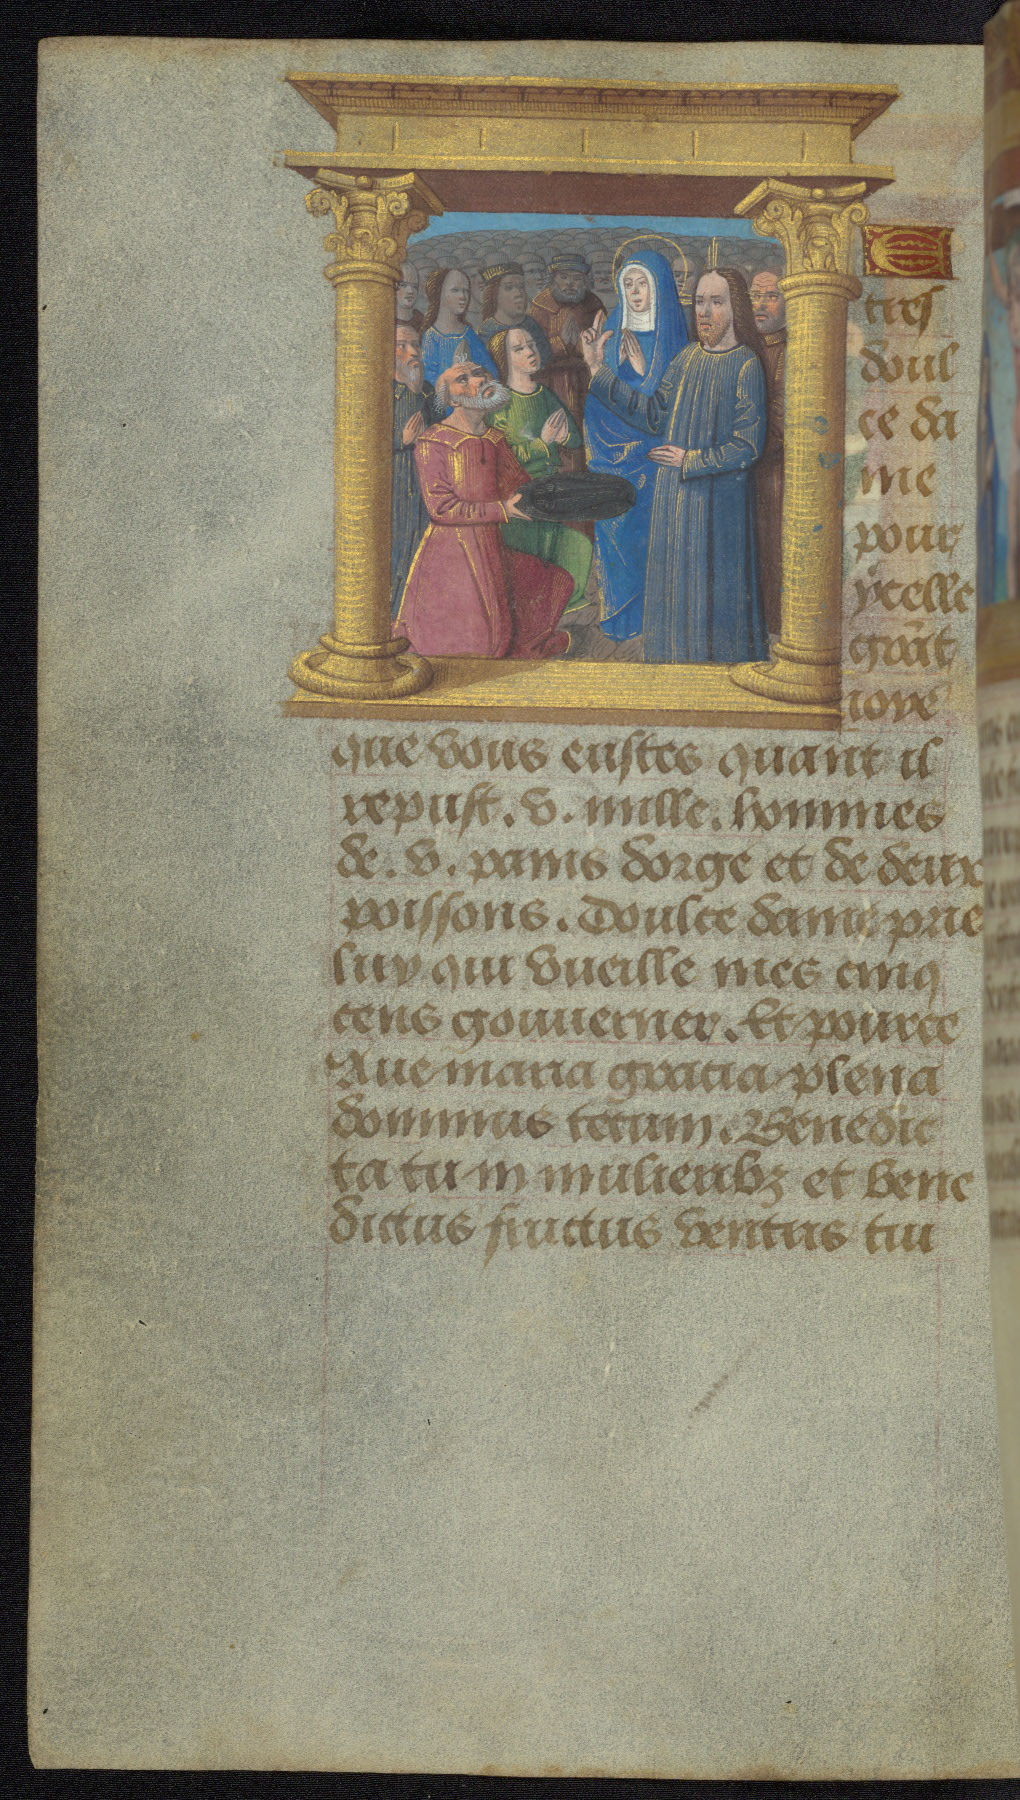 E
tres
doul
ce da
me
pour
ycelle
grãt
ioye
que vous eustes quant il
repust. v. mille. hommes
de. v. pains dorge et de deux
poissons. Doulce dame prie
luy qui vueille mes cinq
cens gouuerner. Et pource
Aue maria gracia plena
dominus tecum. Benedic
ta tu in mulieribꝫ et bene
dictus fructus ventris tui